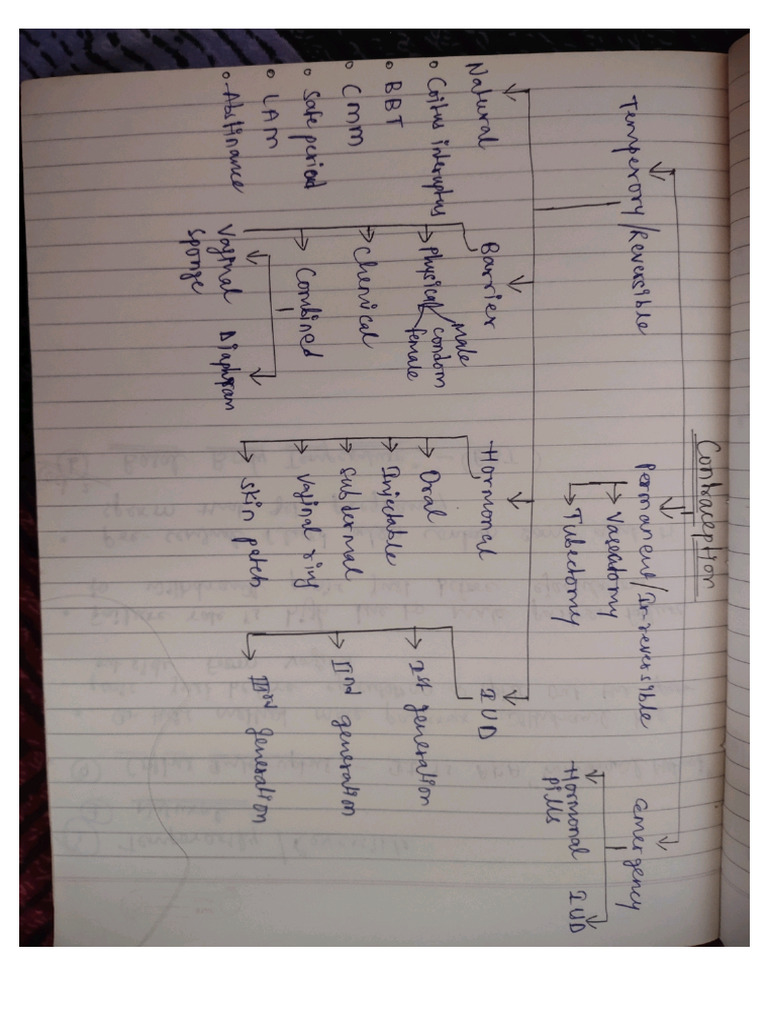 Contraception
Temperory/Reversible
Permanent/Irreversible
emergency
Vasectomy
Tubectomy
Hormonal
pills
IUD
Natural
Barrier
Hormonal
IUD
• Coitus interuptus
• BBT
• CMM
• Safe period
• LAM
• Abstinance
Physical
male
condom
female
Chemical
Combined
Vaginal
sponge
Diaphram
Oral
Injectable
Subdermal
Vaginal ring
Skin patch
Ist generation
IInd generation